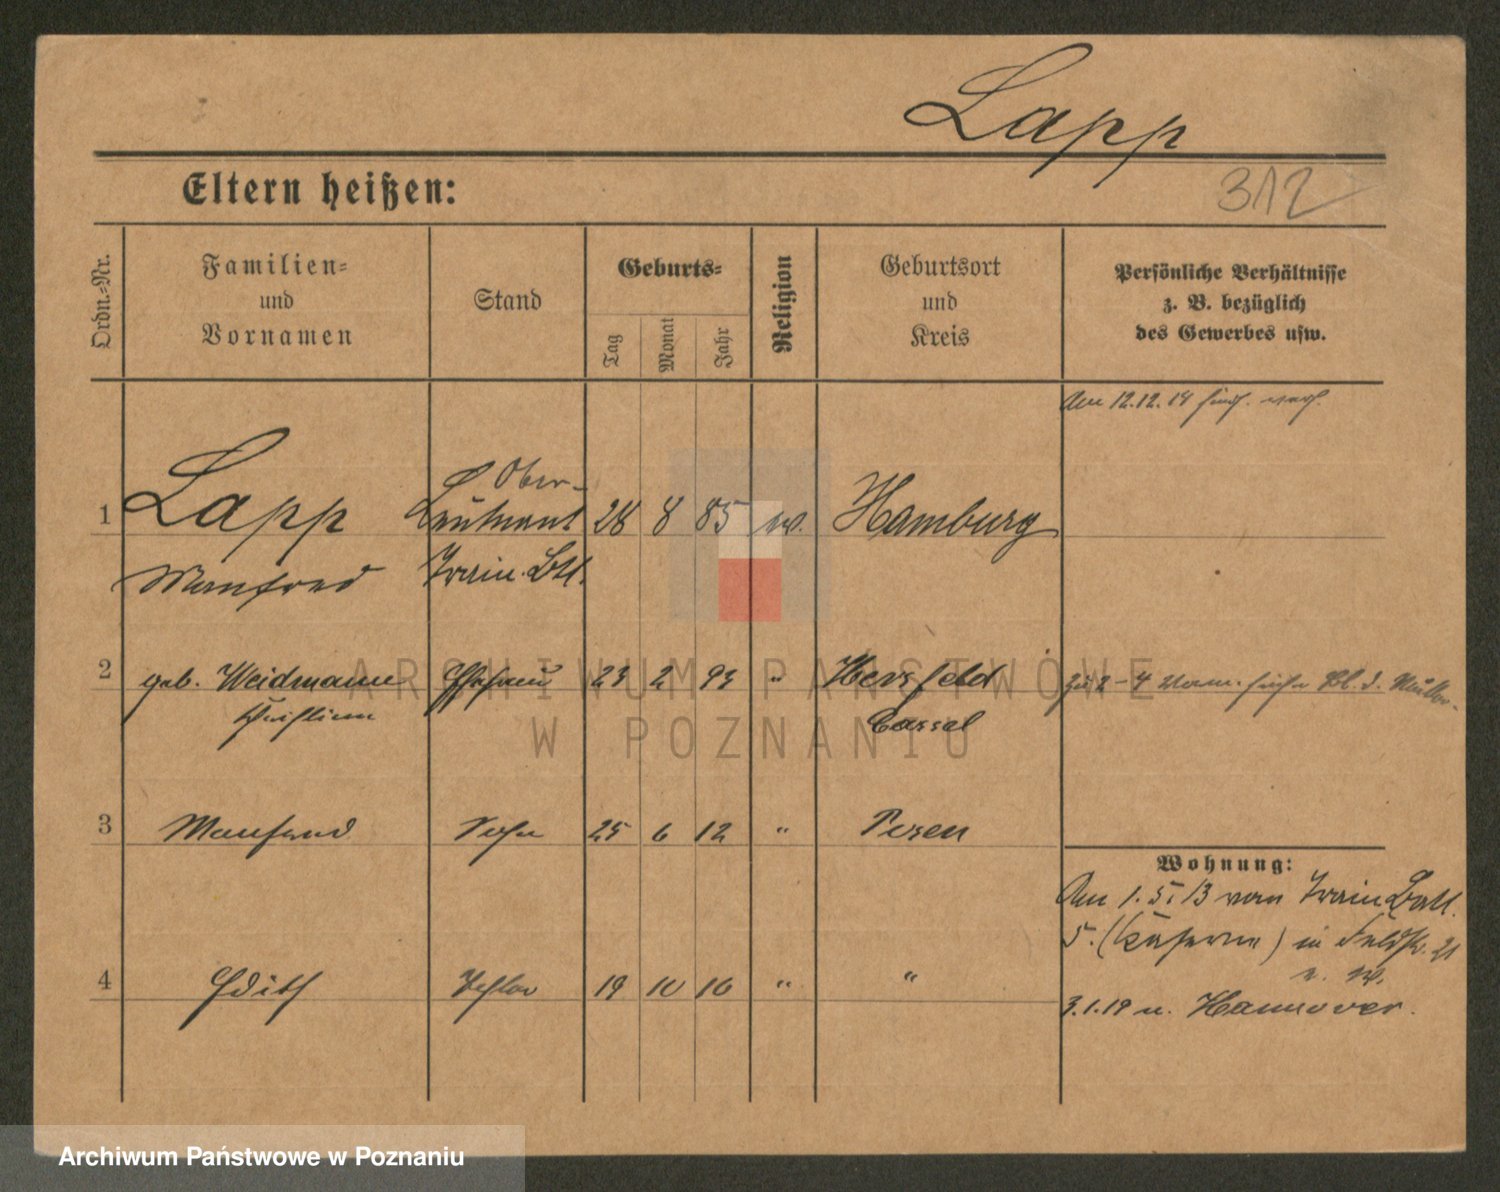 Lapp
Eltern heißen:
312
Ordn.-Nr.
Familien-
und
Vornamen
Stand
Geburts-
Tag
Monat
Jahr
Religion
Geburtsort
und
Kreis
Persönliche Verhältnisse
z. B. bezüglich
des Gewerbes usw.
Am 12.12.14
1 Lapp Ober-
Leutnant 28 8 85 Hamburg
Manfred Train. Btl.
2 geb. Weidmann Ehefrau 23 2 93 " Hersfeld zu 2-4
Cassel
3 Manfred Sohn 25 6 12 " Posen
4 Edith Tochter 19 10 16 " "
Wohnung:
Am 1.5.13 von Train Batl.
5. (Kaserne) in Feldstr. 21
3.1.19 n. Hannover.
ARCHIWUM PAŃSTWOWE
W POZNANIU
Archiwum Państwowe w Poznaniu